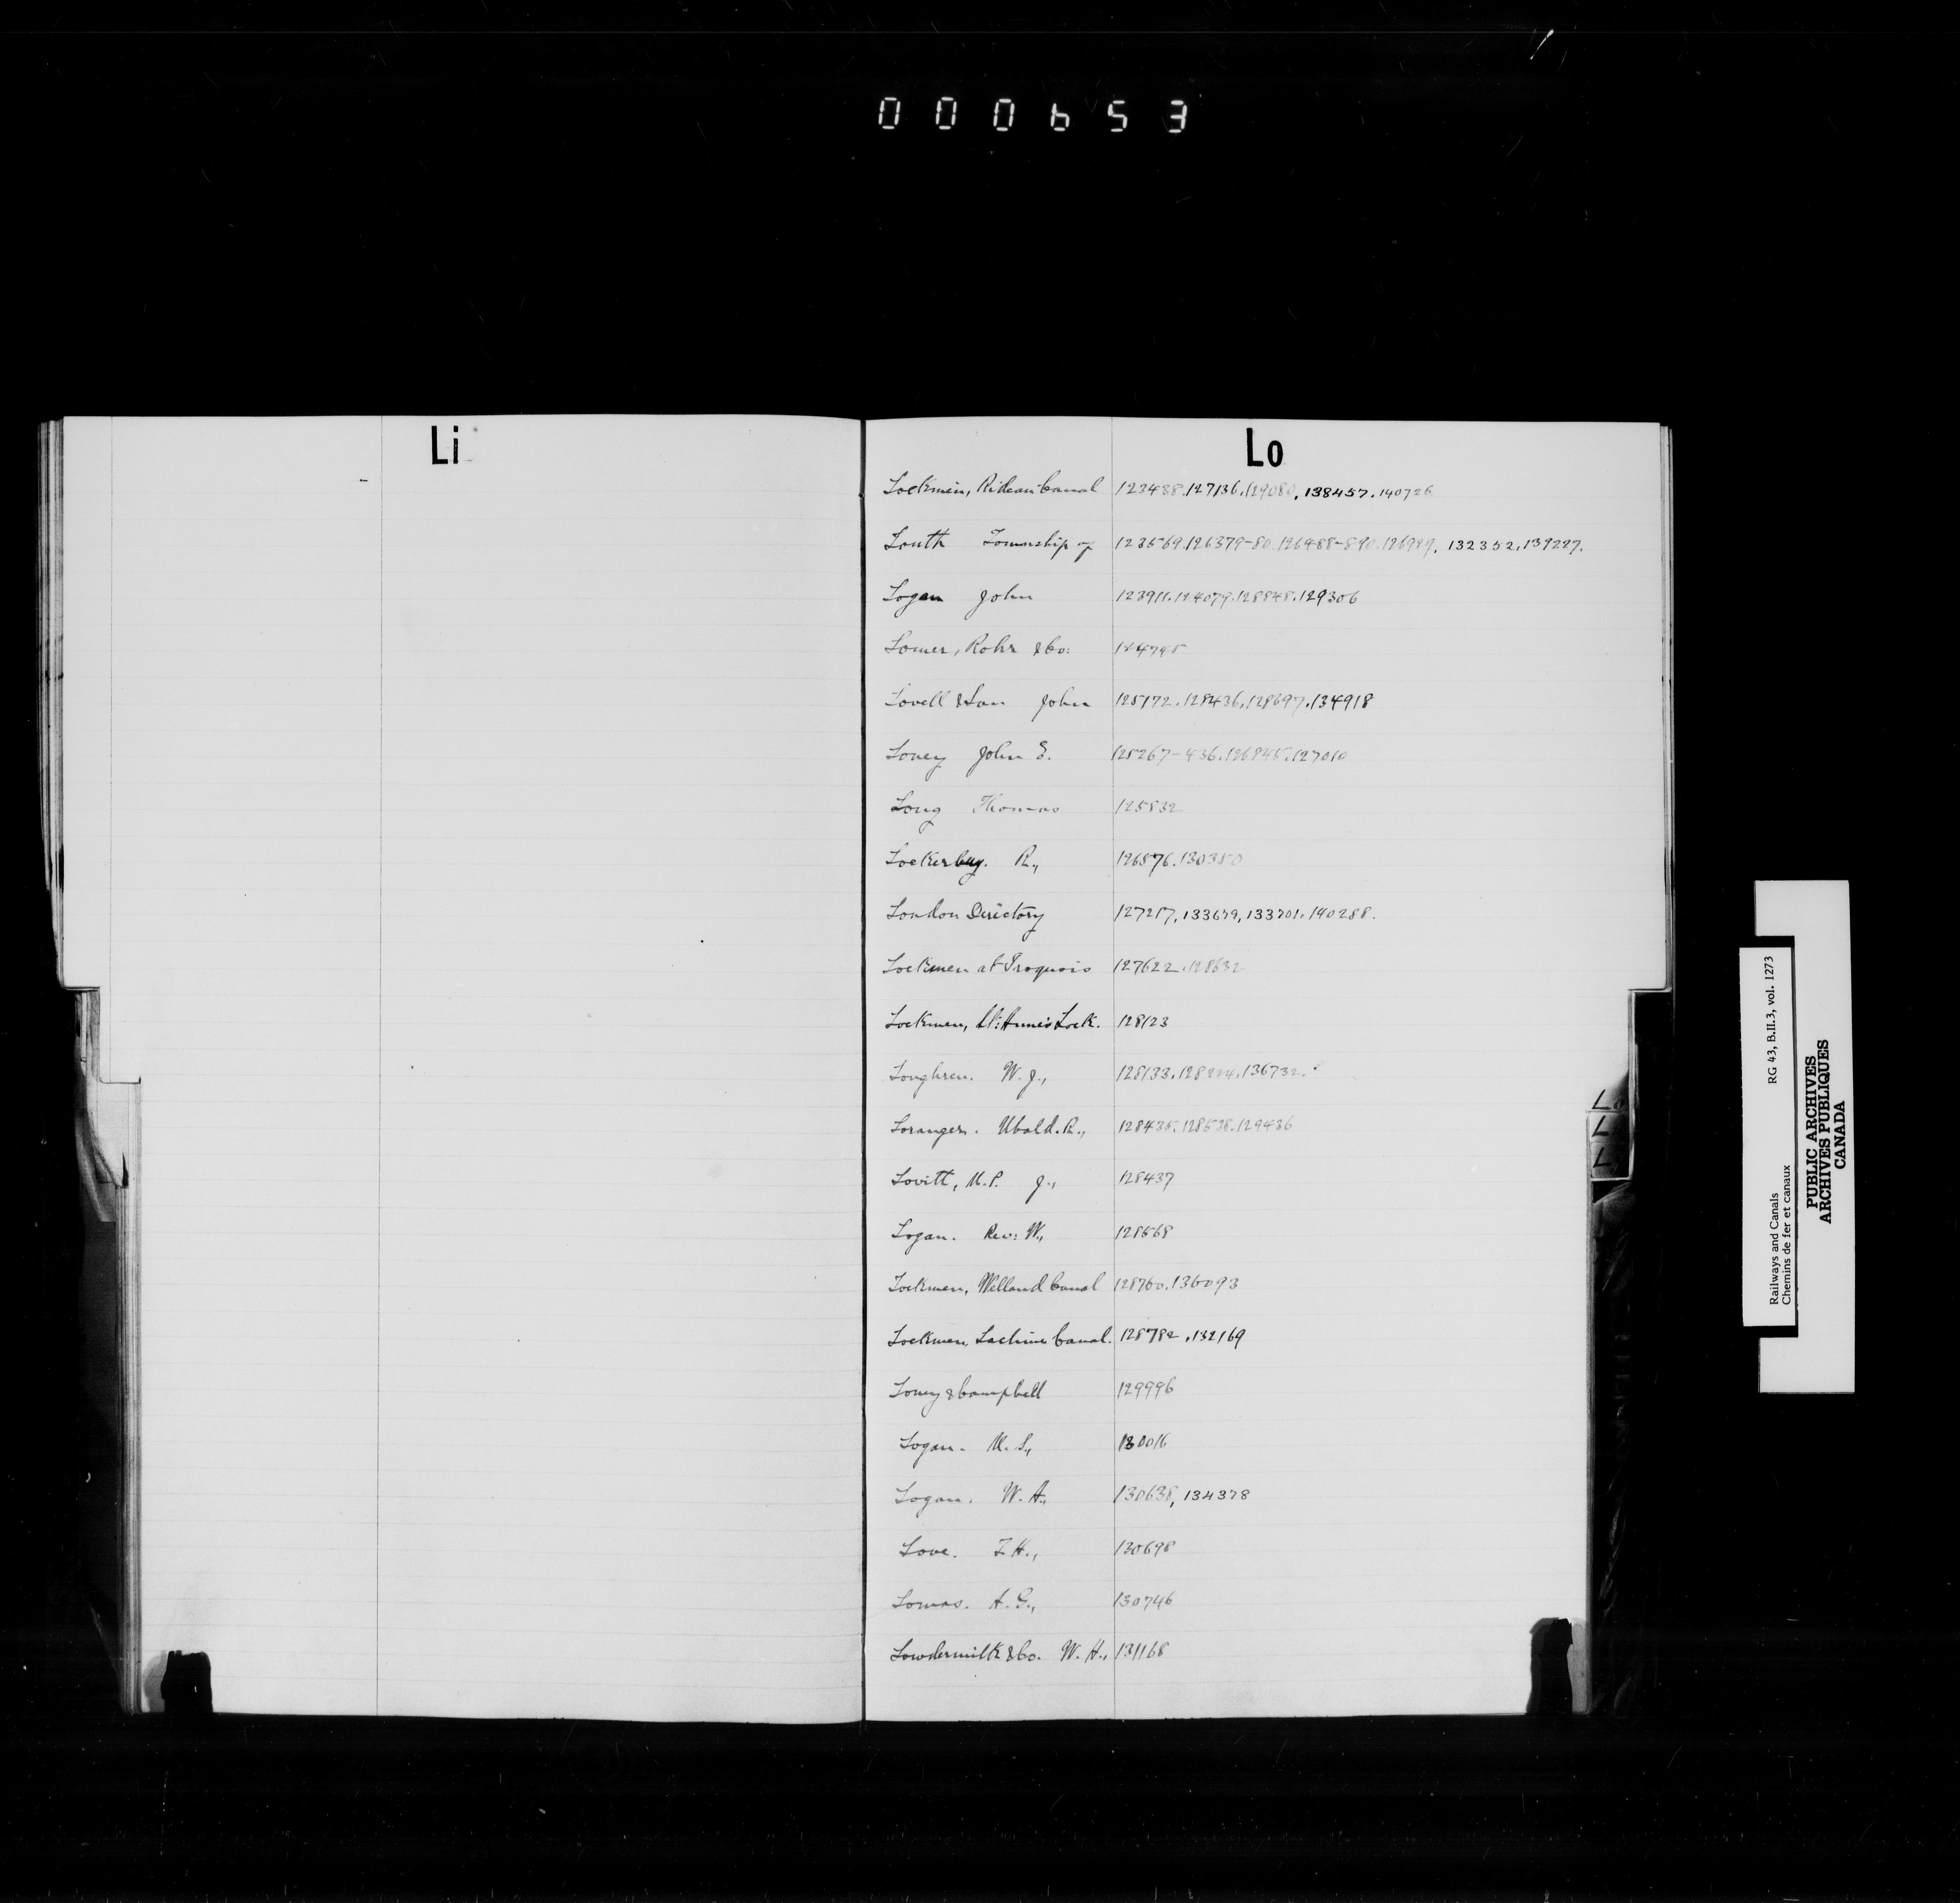 000653
Li
Lo
Lockmen, Rideau Canal 123488.127136.129080, 138457.140726
Louth Township of 123569.126379-80.126488-890.126989, 132352,139227.
Logan John 123911.124079.128848.129306
Lomer, Rohr & Co: 124795
Lovell & Son John 125172.128436.128697.134918
Loney John E. 125267-436.126845.127010
Long Thomas 125832
Lockerbuy. R., 126576.130350
London Directory 127217, 133679, 133701. 140288.
Lockmen at Iroquois 127622.128632
Lockmen, St: Anne's Lock. 128123
Loughren. W. J., 128133.128224.136732.
Loranger. Ubald. R., 128435.128538.129436
Lovitt, M.P. J., 128437
Logan. Rev: W., 128568
Lockmen, Welland Canal 128760.136093
Lockmen, Lachine Canal. 128782.132169
Loney & Campbell 129996
Logan. M. S., 130016
Logan. W. A., 130638, 134378
Love. F. H., 130698
Lomas. A. G., 130746
Lowdermilk & Co. W. H., 131168
Lo
L
L
Railways and Canals RG 43, B.II.3, vol. 1273
Chemins de fer et canaux
PUBLIC ARCHIVES
ARCHIVES PUBLIQUES
CANADA